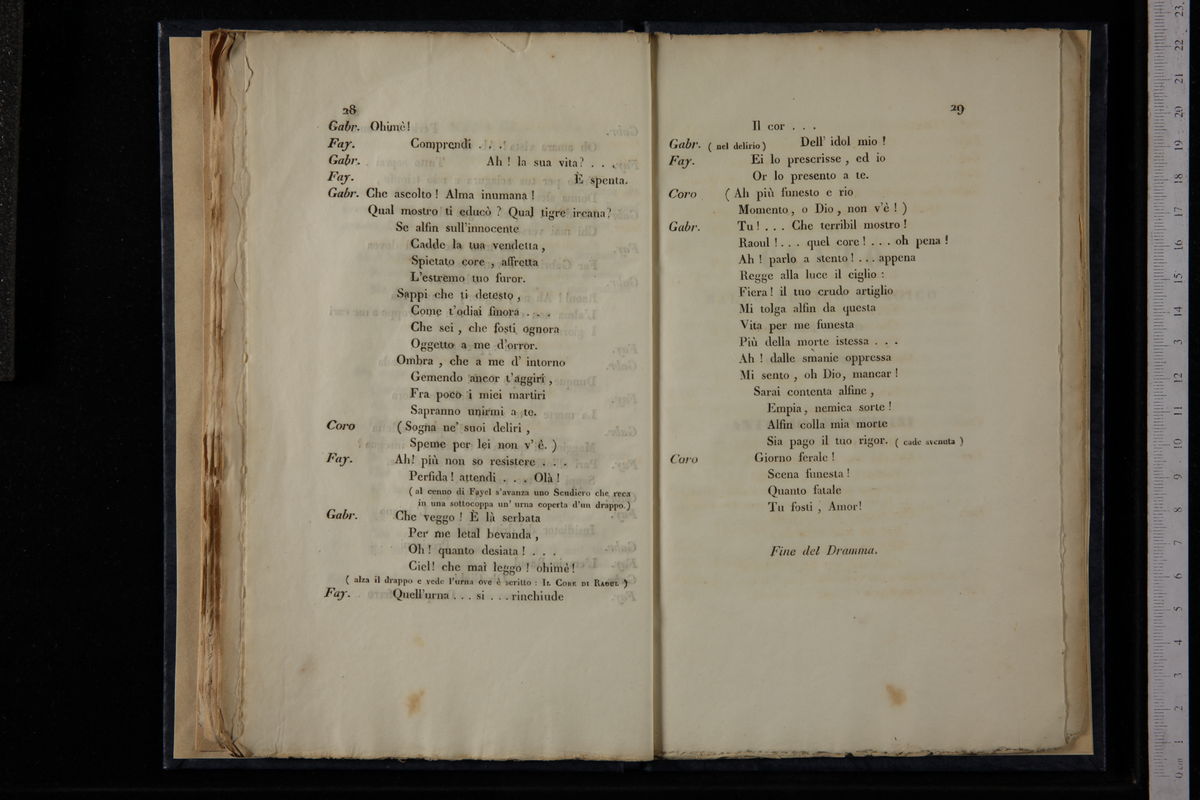 28
Gabr. Ohimè!
Fay. Comprendi . . .
Gabr. Ah ! la sua vita? . . .
Fay. È spenta.
Gabr. Che ascolto ! Alma inumana !
Qual mostro ti educò ? Qual tigre ircana?
Se alfin sull'innocente
Cadde la tua vendetta ,
Spietato core , affretta
L'estremo tuo furor.
Sappi che ti detesto ,
Come t'odiai finora . . .
Che sei , che fosti ognora
Oggetto a me d'orror.
Ombra , che a me d' intorno
Gemendo ancor t'aggiri ,
Fra poco i miei martiri
Sapranno unirmi a te.
Coro ( Sogna ne' suoi deliri ,
Speme per lei non v' è. )
Fay. Ah! più non so resistere . . .
Perfida ! attendi . . . Olà !
( al cenno di Fayel s'avanza uno Scudiero che reca
in una sottocoppa un' urna coperta d'un drappo. )
Gabr. Che veggo ! È là serbata
Per me letal bevanda ,
Oh ! quanto desiata ! . . .
Ciel! che mai leggo ! ohimè!
( alza il drappo e vede l'urna ove è scritto : Il Core di Raoul )
Fay. Quell'urna . . . si . . . rinchiude
29
Il cor . . .
Gabr. ( nel delirio ) Dell' idol mio !
Fay. Ei lo prescrisse , ed io
Or lo presento a te.
Coro ( Ah più funesto e rio
Momento , o Dio , non v'è ! )
Gabr. Tu ! . . . Che terribil mostro !
Raoul ! . . . quel core ! . . . oh pena !
Ah ! parlo a stento ! . . . appena
Regge alla luce il ciglio :
Fiera ! il tuo crudo artiglio
Mi tolga alfin da questa
Vita per me funesta
Più della morte istessa . . .
Ah ! dalle smanie oppressa
Mi sento , oh Dio, mancar !
Sarai contenta alfine ,
Empia , nemica sorte !
Alfin colla mia morte
Sia pago il tuo rigor. ( cade svenuta )
Coro Giorno ferale !
Scena funesta !
Quanto fatale
Tu fosti , Amor!
Fine del Dramma.
0 cm 1 2 3 4 5 6 7 8 9 10 11 12 13 14 15 16 17 18 19 20 21 22 23